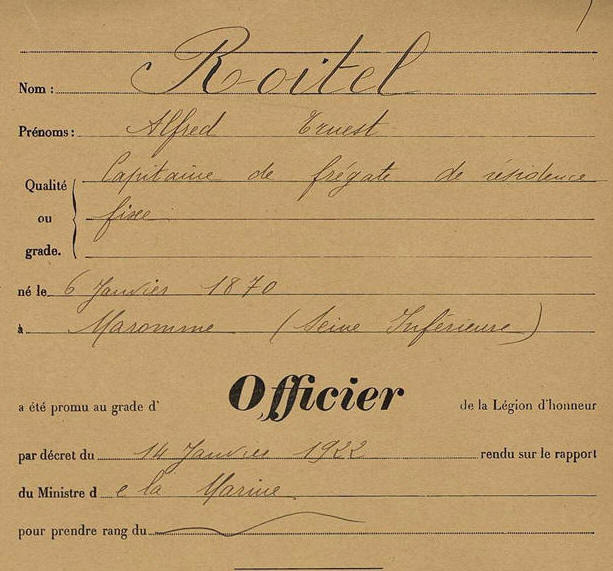 Nom : Roitel
Prénoms : Alfred Ernest
Qualité ou grade. Capitaine de frégate de résidence
fixe
né le 6 Janvier 1870
à Maromme (Seine Inférieure)
a été promu au grade d' Officier de la Légion d'honneur
par décret du 14 Janvier 1922 rendu sur le rapport
du Ministre de la Marine
pour prendre rang du